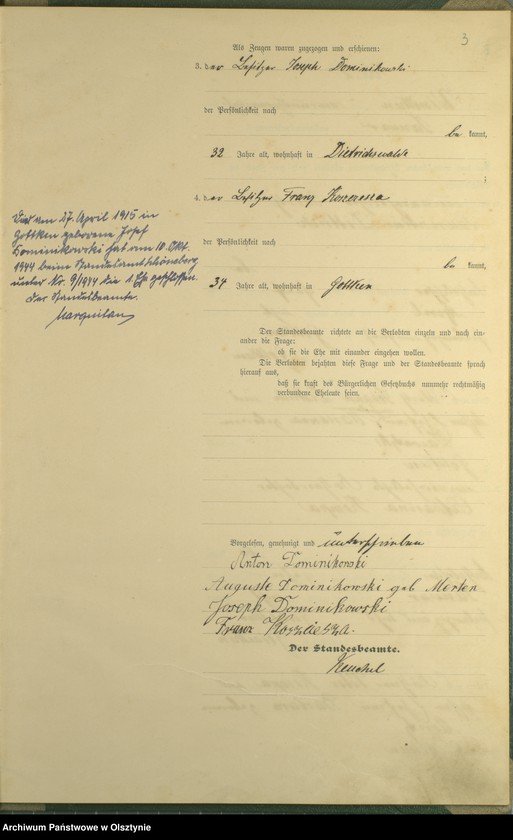 3
Als Zeugen waren zugezogen und erschienen:
3. der Besitzer Joseph Dominikowski
der Persönlichkeit nach
be kannt,
32 Jahre alt, wohnhaft in Dietrichswalde
;
4. der Besitzer Franz
der Persönlichkeit nach
be kannt,
34 Jahre alt, wohnhaft in Gottken
Der am 27. April 1915 in
Gottken geborene Josef
Dominikowski hat am 10. Okt.
1944 beim Standesamt Schöneberg
unter Nr. 9/1944 die 1. Ehe geschlossen.
Der Standesbeamte.
Der Standesbeamte richtete an die Verlobten einzeln und nach ein-
ander die Frage:
ob sie die Ehe mit einander eingehen wollen.
Die Verlobten bejahten diese Frage und der Standesbeamte sprach
hierauf aus,
daß sie kraft des Bürgerlichen Gesetzbuchs nunmehr rechtmäßig
verbundene Eheleute seien.
Vorgelesen, genehmigt und unterschrieben
Anton Dominikowski
Auguste Dominikowski geb Merten
Joseph Dominikowski
Franz
Der Standesbeamte.
Archiwum Państwowe w Olsztynie